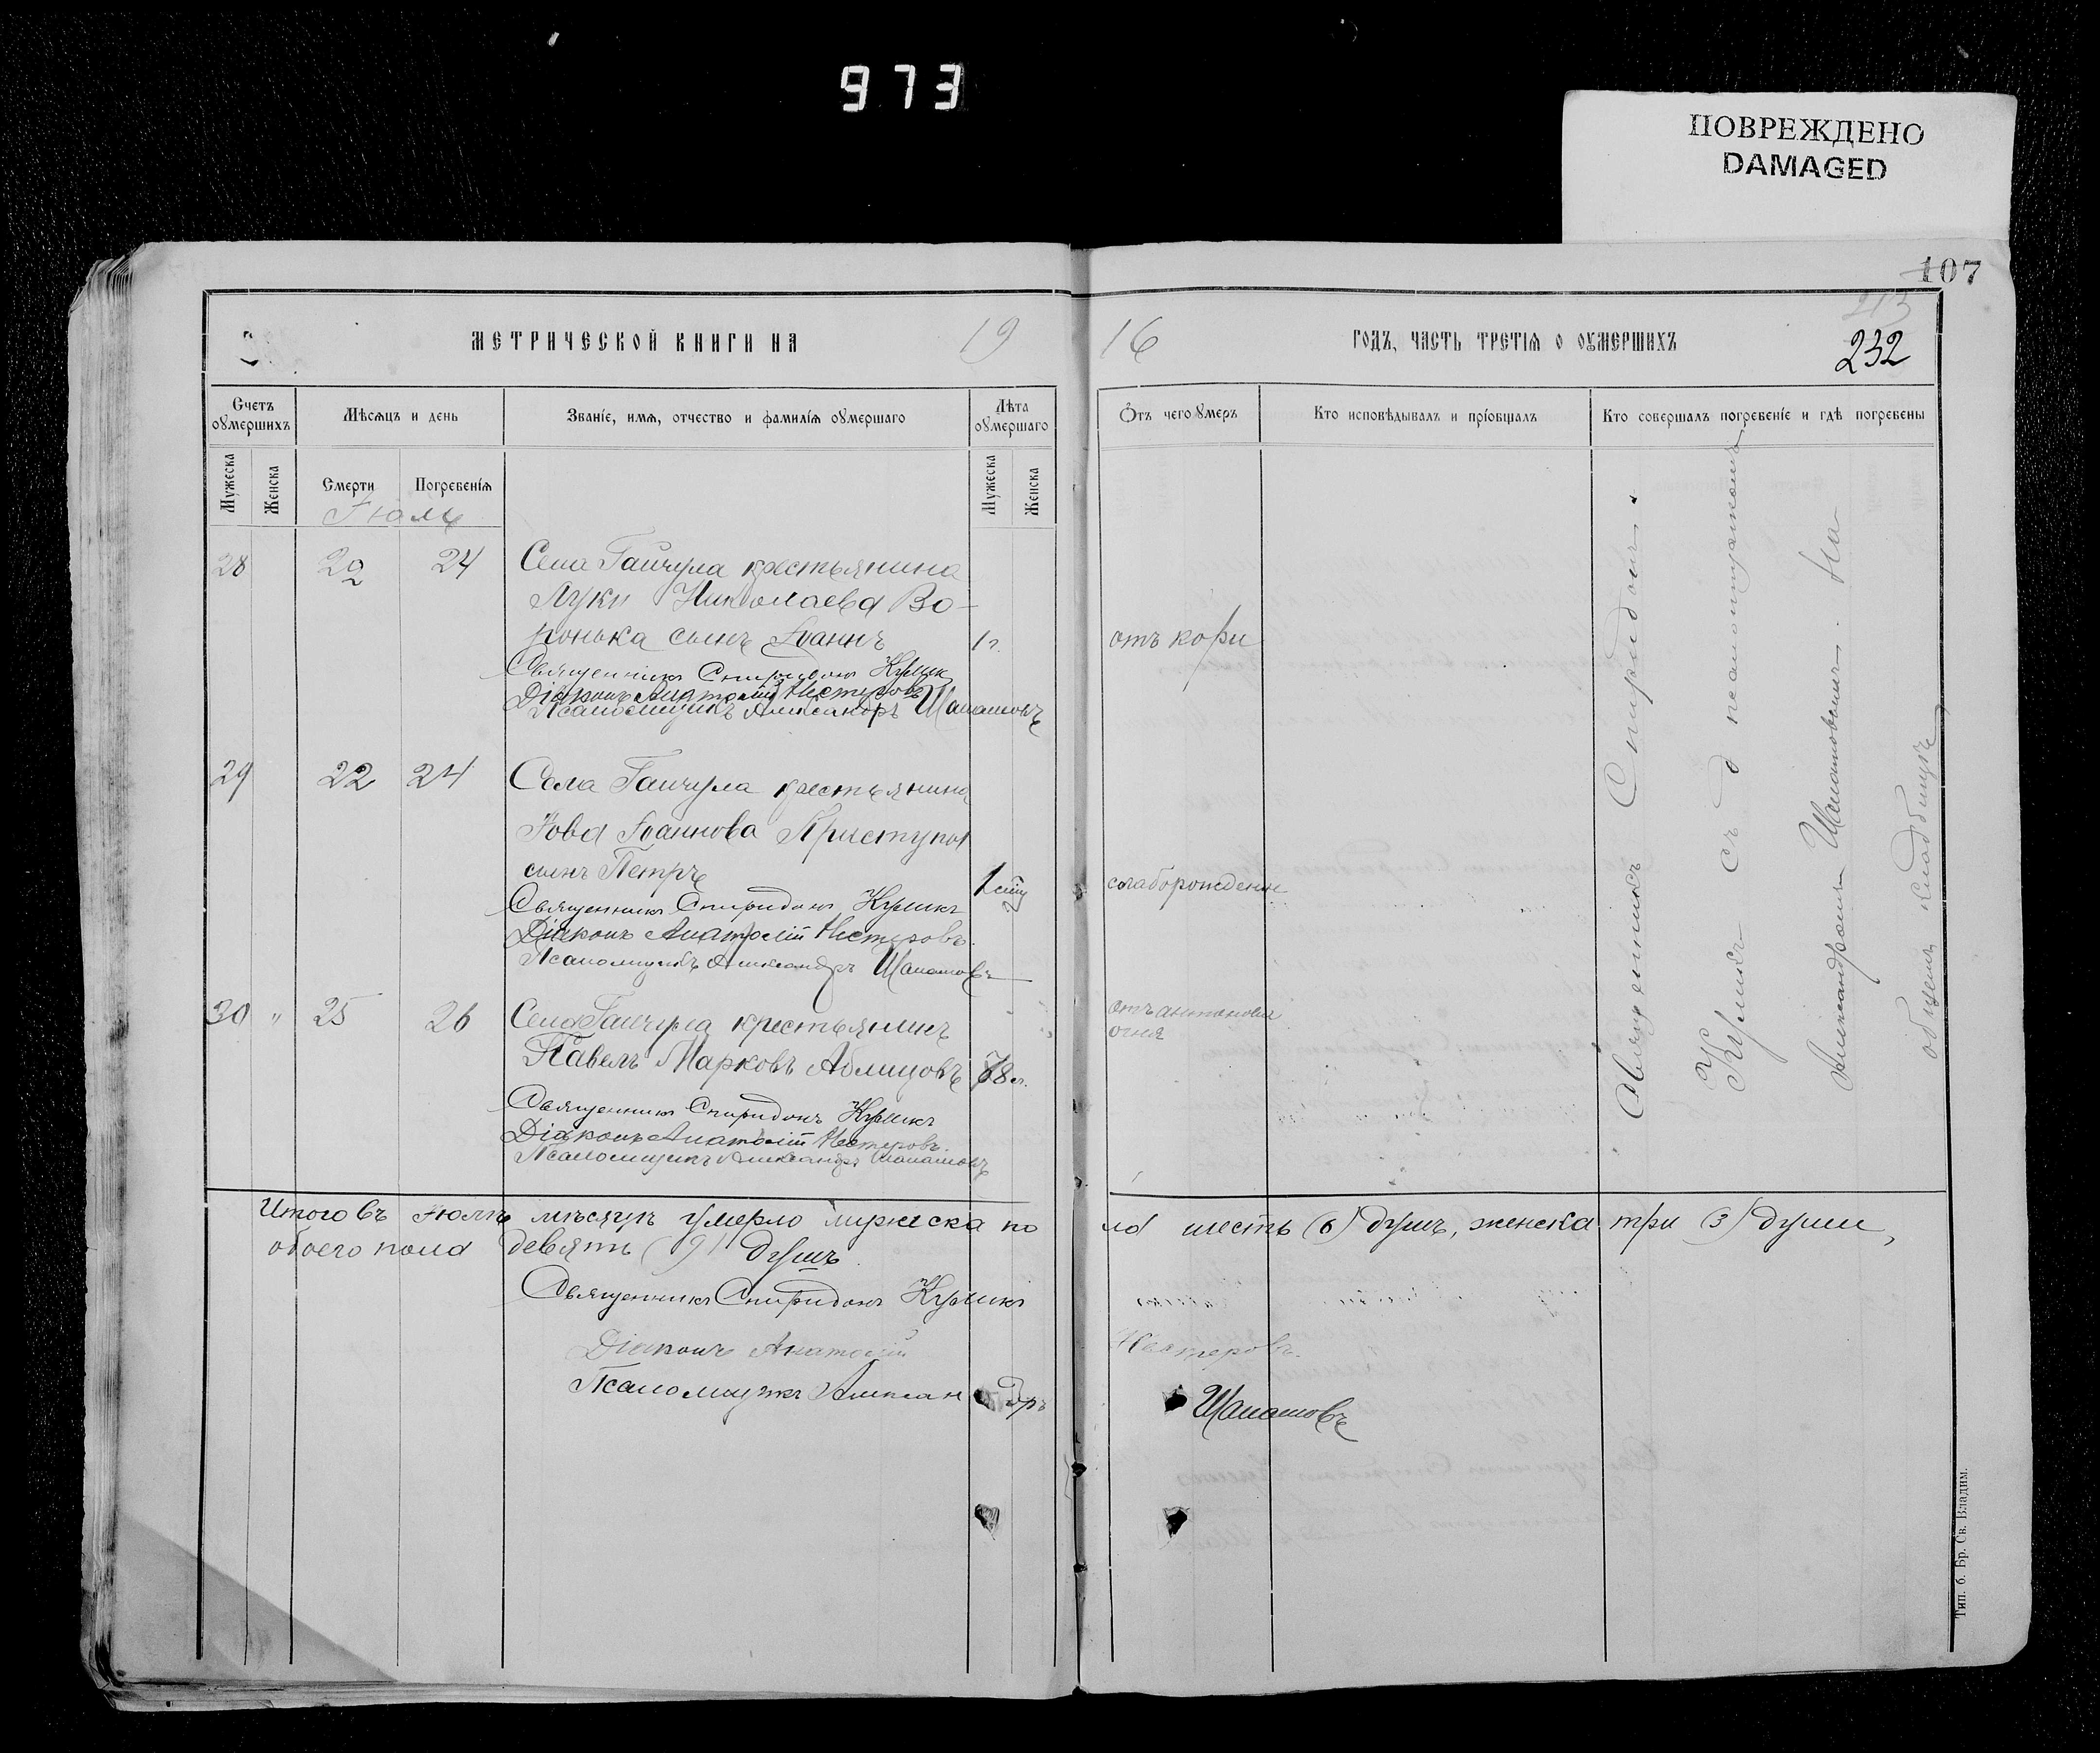 973
ПОВРЕЖДЕНО
DAMAGED
107
213
232
МЕТРИЧЕСКОЙ КНИГИ НА 19
16 ГОДЪ, ЧАСТЬ ТРЕТІЯ О ОУМЕРШИХЪ
Счетъ оумершихъ
Мѣсяцъ и день
Званіе, имя, отчество и фамилія оумершаго
Лѣта оумершаго
Отъ чего оумеръ
Кто исповѣдывалъ и пріобщалъ
Кто совершалъ погребеніе и гдѣ погребены
Мужеска
Женска
Смерти
Погребенія
Мужеска
Женска
Іюль
28 22 24 Села Гайчула крестьянина
Луки Николаева Во-
ронька сынъ Іоаннъ 1 г. отъ кори
Священникъ Спиридонъ Куликъ
Діаконъ Анатолій Нестеровъ
Псаломщикъ Александръ
29 22 24 Села Гайчула крестьянина
Іова Іоаннова Приступа
сынъ Петръ слаборожденія
Священникъ Спиридонъ Куликъ
Діаконъ Анатолій Нестеровъ.
Псаломщикъ Александръ
30 " 25 26 Села Гайчула крестьянинъ
Павелъ Марковъ 78 л. отъ антонова
огня
Священникъ Спиридонъ Куликъ
Діаконъ Анатолій Нестеровъ.
Псаломщикъ Александръ
Священникъ Спиридонъ
Куликъ съ псаломщикомъ
Александромъ На
общемъ кладбищѣ
Итого въ Іюлѣ мѣсяцѣ умерло мужеска по
ла шесть (6) душъ, женска три (3) души,
обоего пола девять (9) душъ.
Священникъ Спиридонъ Куликъ
Діаконъ Анатолій Нестеровъ.
Псаломщикъ Александръ
Тип. б. Бр. Св. Владим.